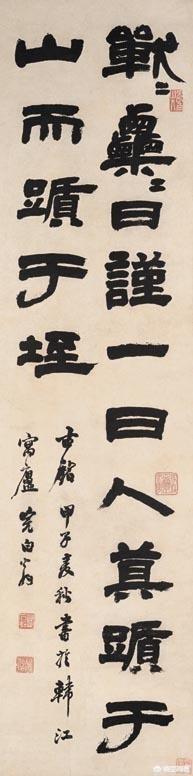 戰〻栗〻日謹一日人莫躓于
山而躓于垤
甲子秋書於韓江
寓廬完白翁